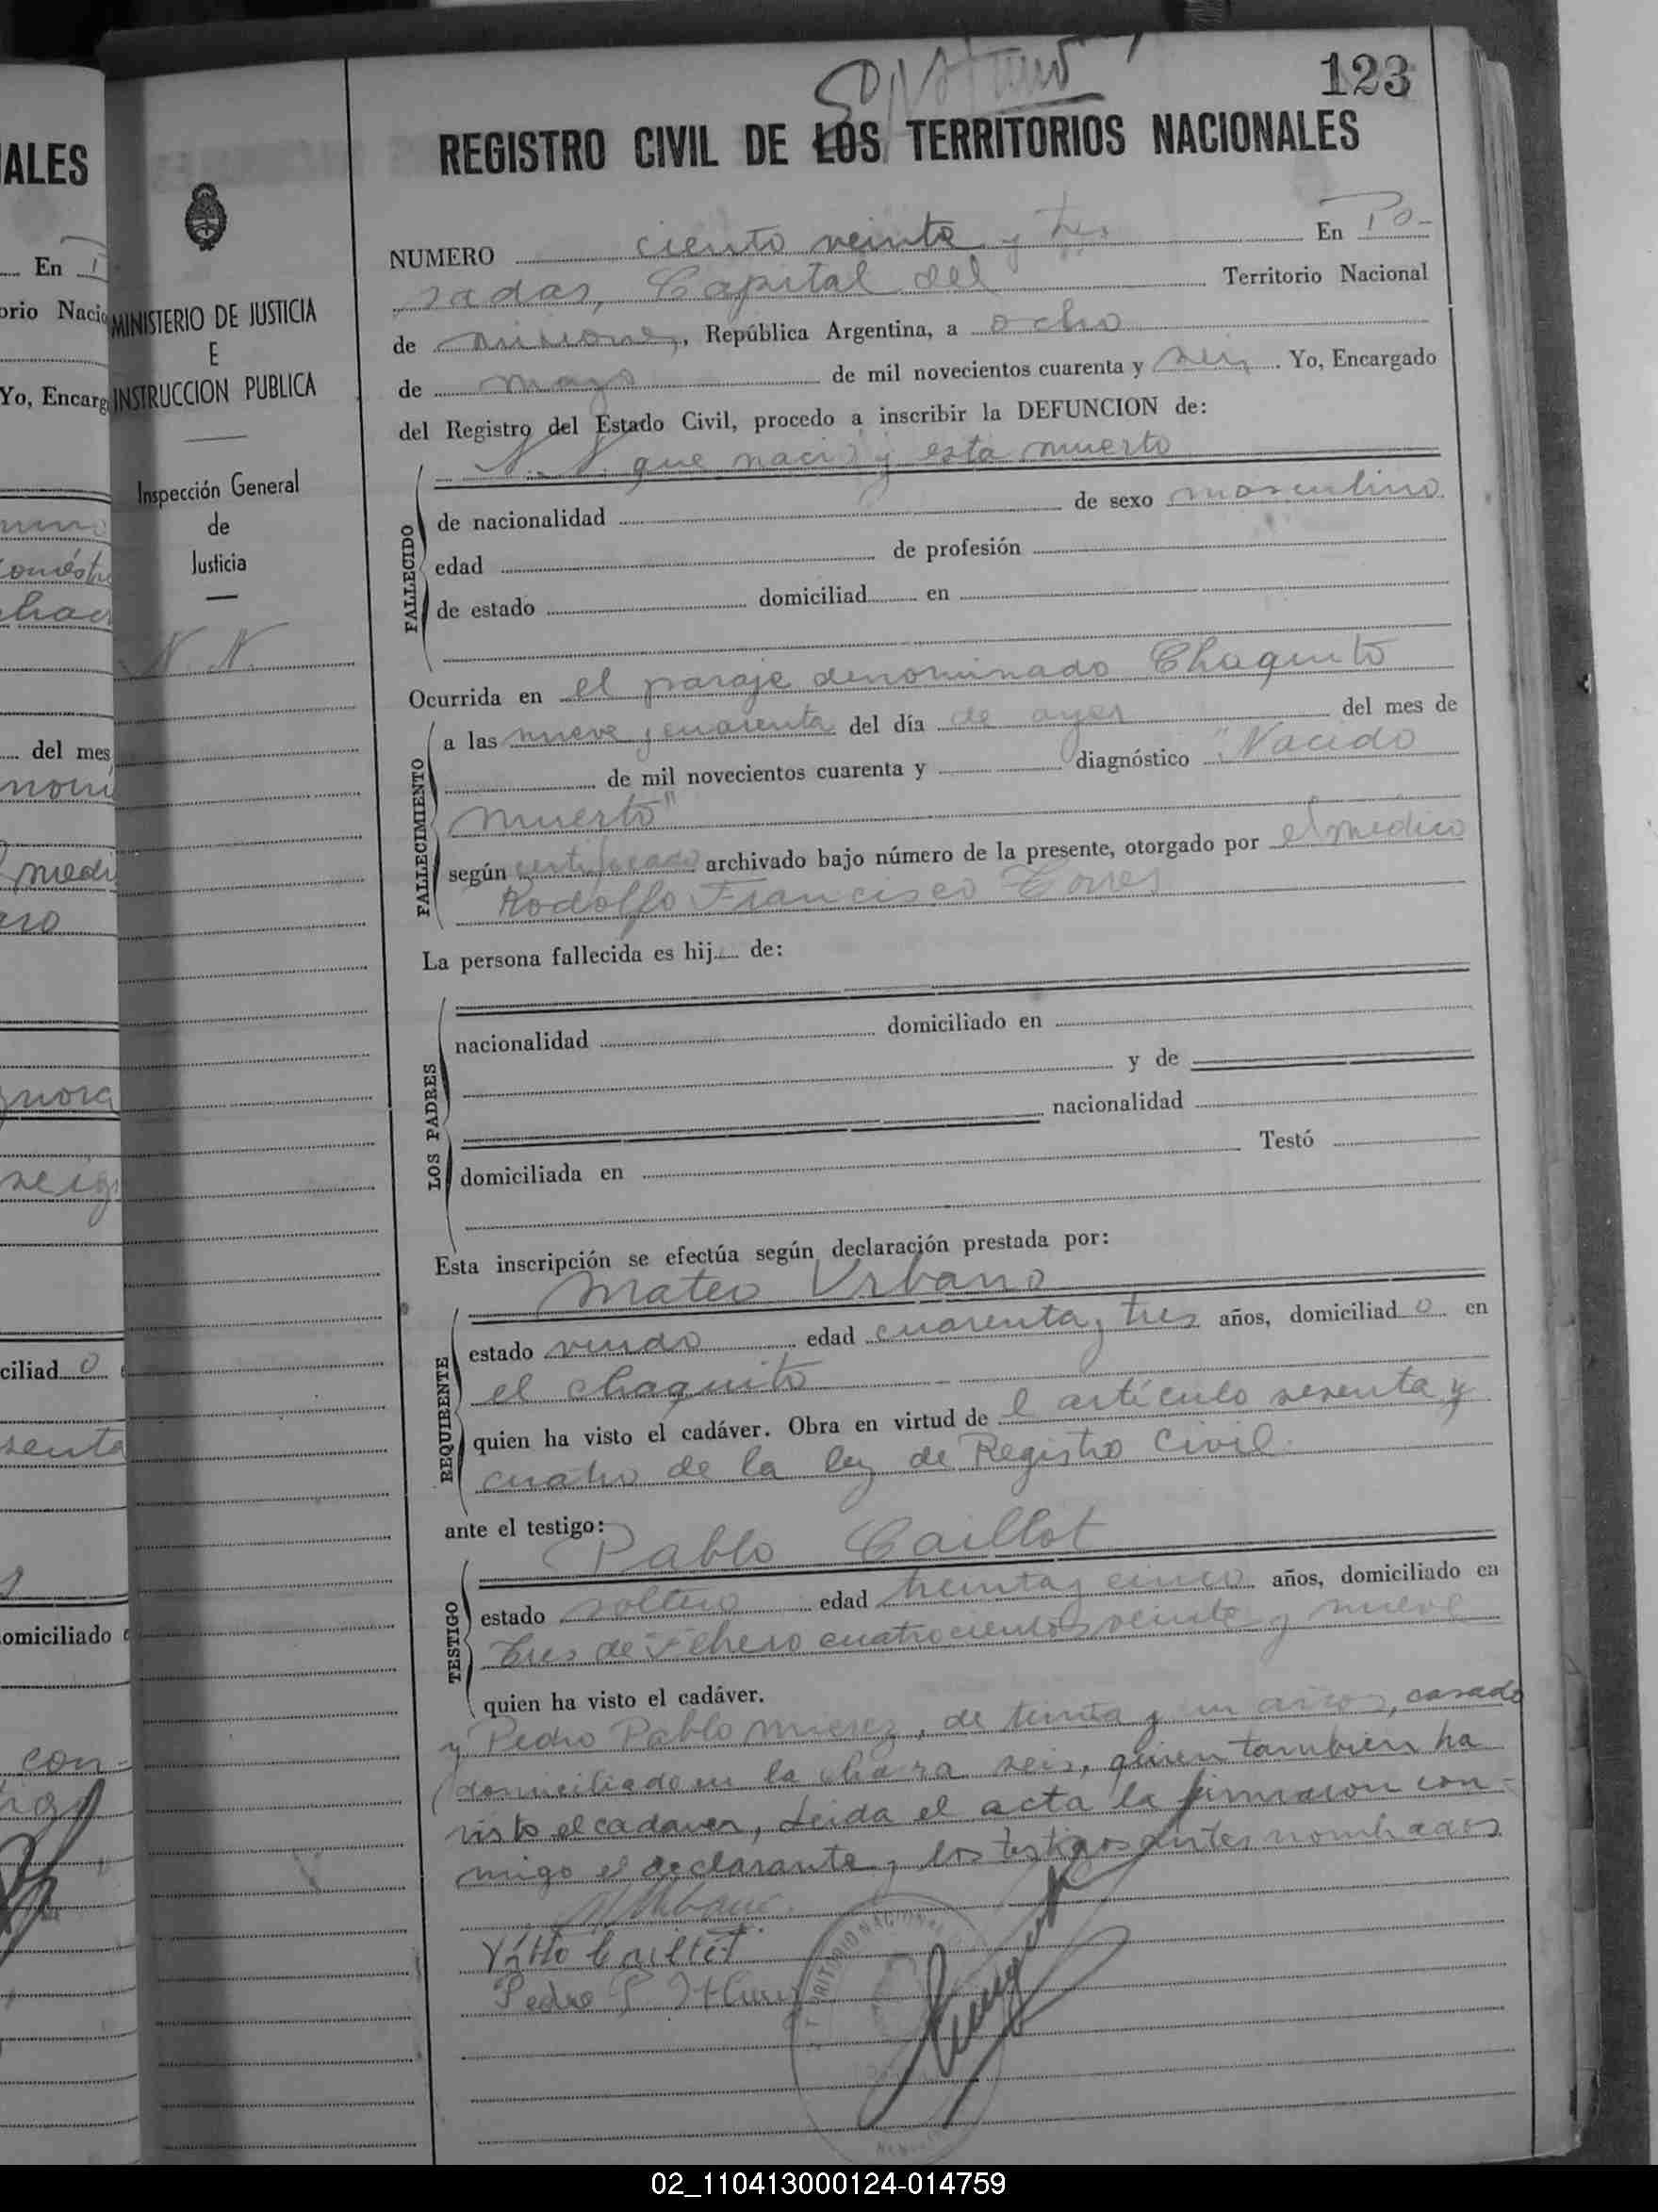 123
REGISTRO CIVIL DE LOS TERRITORIOS NACIONALES
IALES
En
orio Nacio
Yo, Encarg
del mes
medi
ciliad o
senta
omiciliado
con-
MINISTERIO DE JUSTICIA
E
INSTRUCCION PUBLICA
Inspección General
de
Justicia
N. N.
NUMERO ciento veinte y tres En Po-
sadas, Capital del Territorio Nacional
de Misiones, República Argentina, a ocho
de mayo de mil novecientos cuarenta y seis. Yo, Encargado
del Registro del Estado Civil, procedo a inscribir la DEFUNCION de:
N. N. que nació y esta muerto
FALLECIDO
de nacionalidad de sexo masculino
edad de profesión
de estado domiciliad en
Ocurrida en el paraje denominado Chaquito
FALLECIMIENTO
a las nueve y cuarenta del día de ayer del mes de
de mil novecientos cuarenta y diagnóstico "Nacido
muerto"
según certificado archivado bajo número de la presente, otorgado por el medico
Rodolfo Francisco Torres
La persona fallecida es hij de:
LOS PADRES
nacionalidad domiciliado en
y de
nacionalidad
domiciliada en Testó
Esta inscripción se efectúa según declaración prestada por:
Mateo Urbano
REQUIRENTE
estado viudo edad cuarenta y tres años, domiciliad o en
el chaquito
quien ha visto el cadáver. Obra en virtud de l artículo sesenta y
cuatro de la ley de Registro Civil.
ante el testigo:
Pablo Caillot
TESTIGO
estado soltero edad treinta y cinco años, domiciliado en
Tres de Febrero cuatrocientos veinte y nueve
quien ha visto el cadáver.
y Pedro Pablo , de treinta y un años, casado
domiciliado en la chacra seis, quien tambien ha
visto el cadaver, Leida el acta la firmaron con-
migo el declarante y los testigos antes nombrados
Pedro P.
02_110413000124-014759